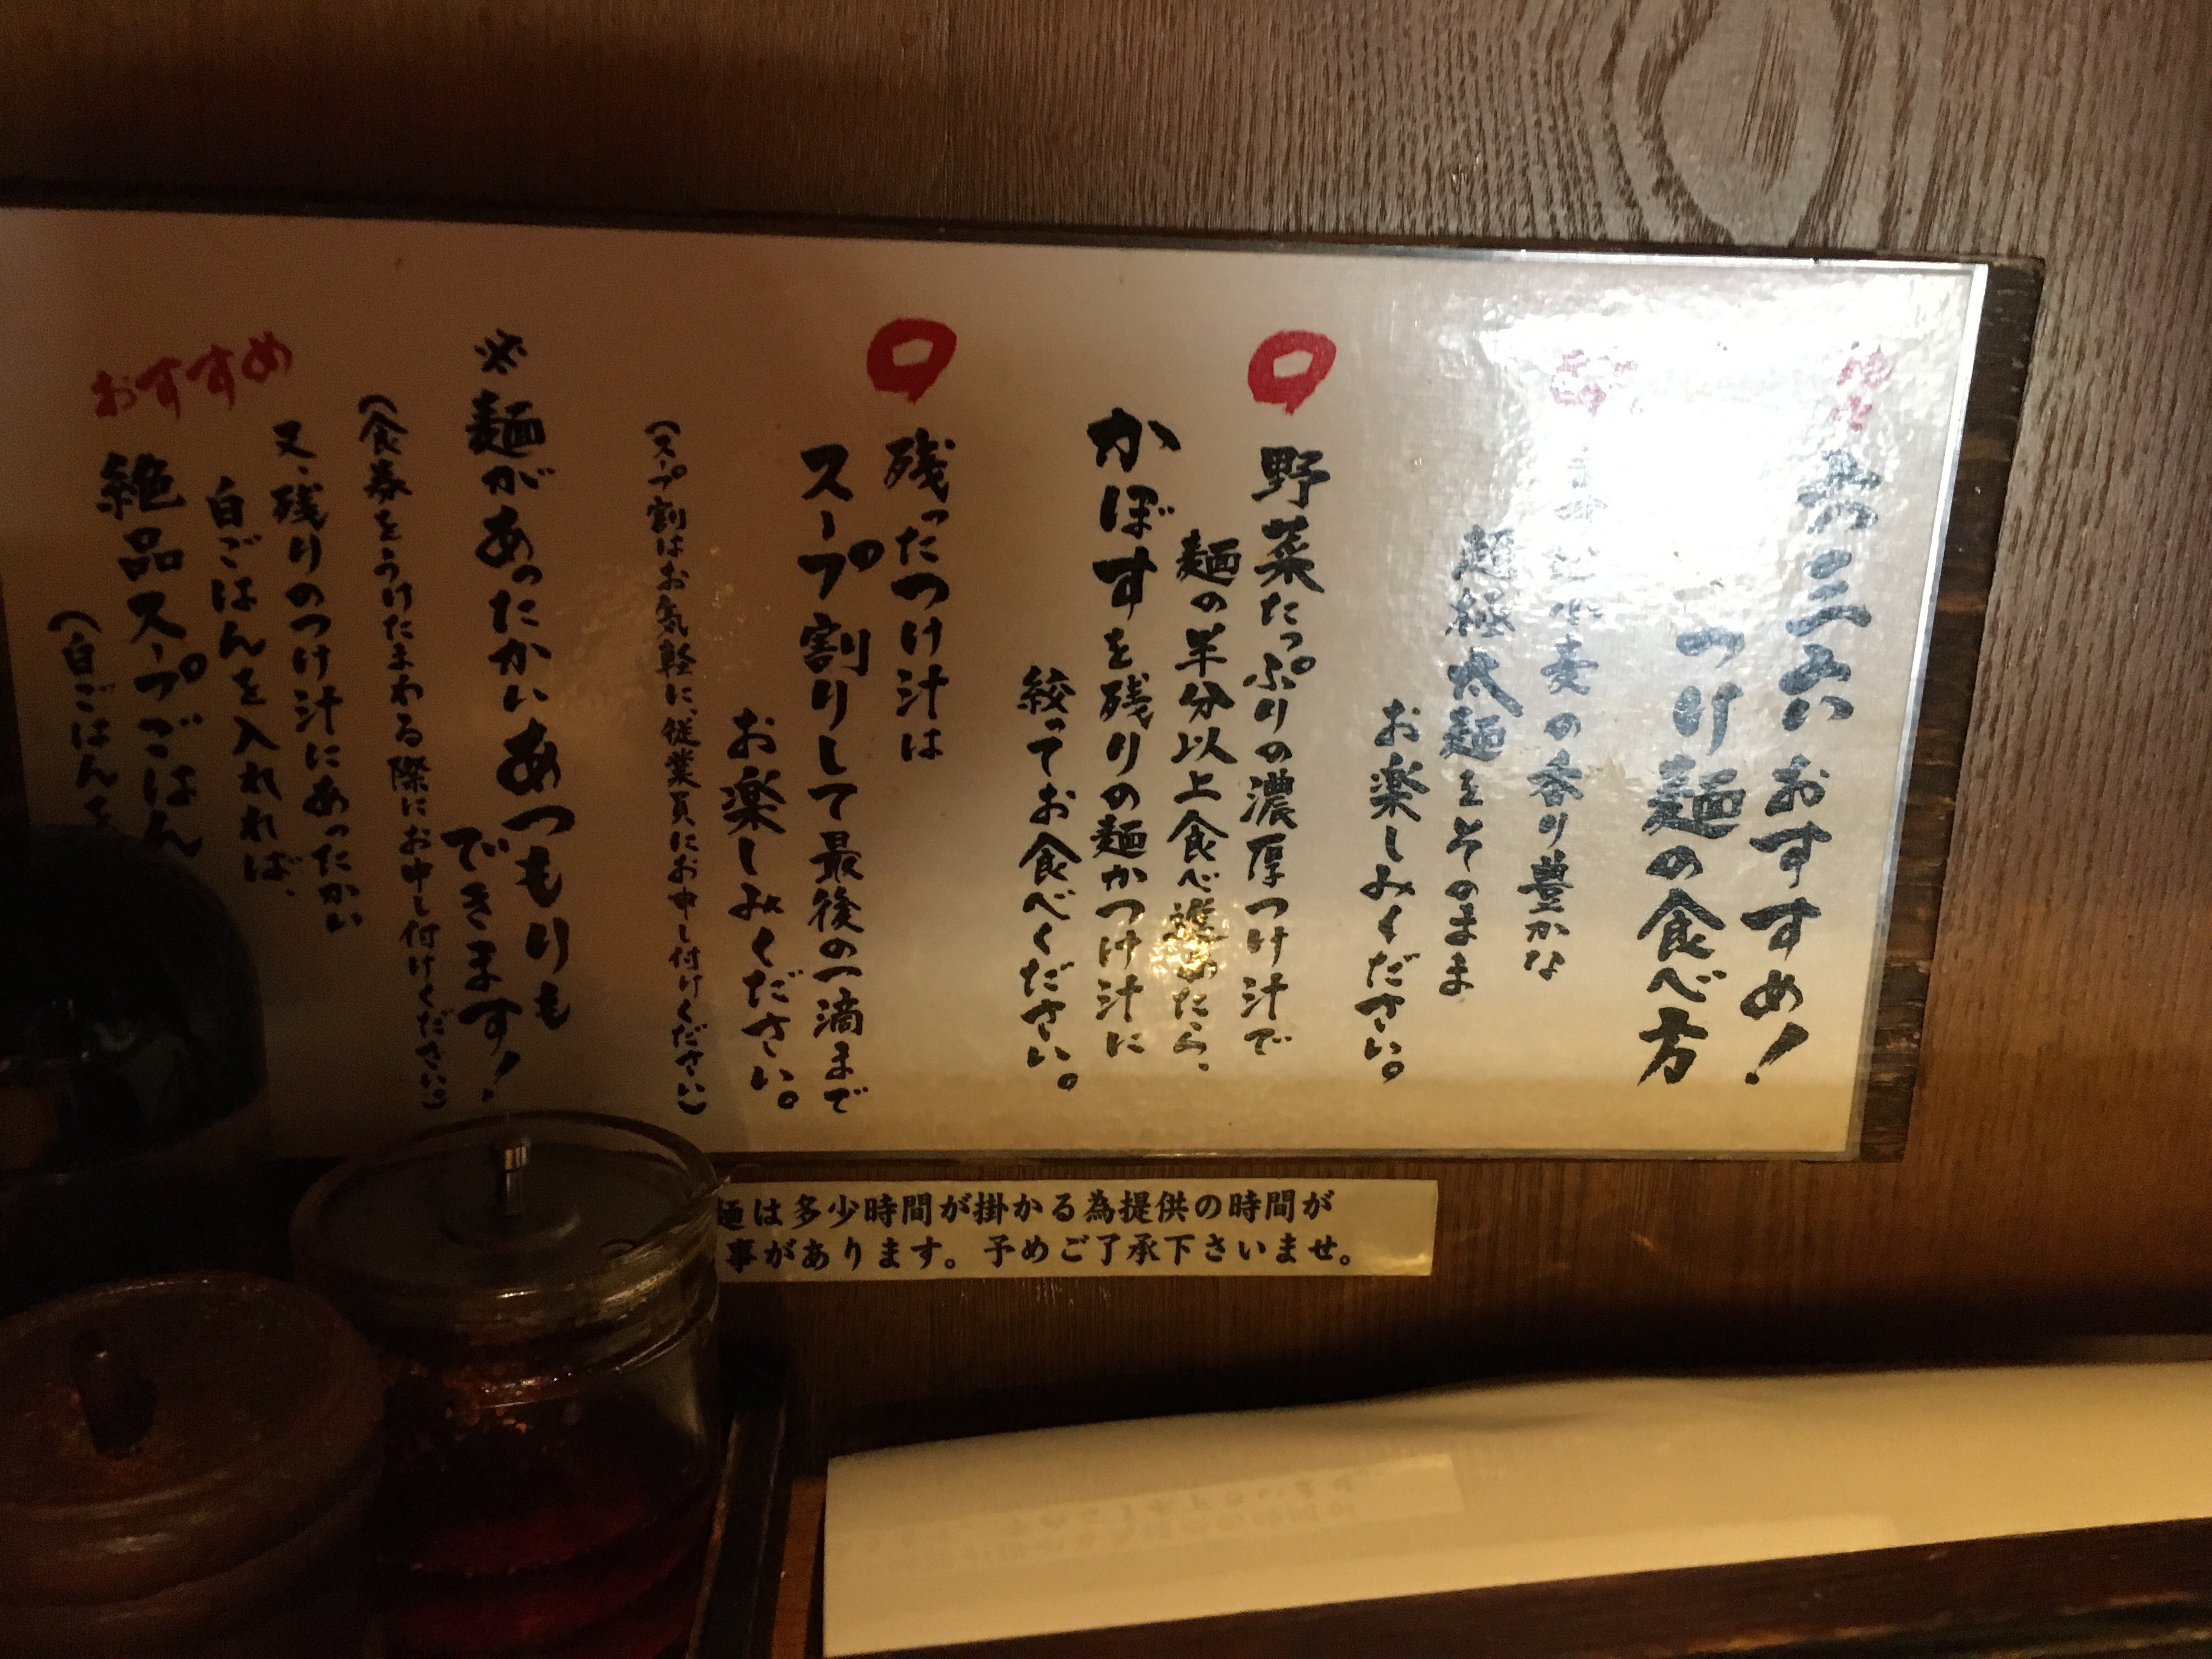 六三六おすすめ！
つけ麺の食べ方
小麦の香り豊かな
超極太麺をそのまま
お楽しみください。
野菜たっぷりの濃厚つけ汁で
麺の半分以上食べ進めたら、
かぼすを残りの麺かつけ汁に
絞ってお食べください。
残ったつけ汁は
スープ割りして最後の一滴まで
お楽しみください。
（スープ割はお気軽に、従業員にお申し付けください）
※麺があったかいあつもりも
できます！
（食券をうけたまわる際にお申し付けください。）
おすすめ
又、残りのつけ汁にあったかい
白ごはんを入れれば、
絶品スープごはん
（白ごはんを
麺は多少時間が掛かる為提供の時間が
事があります。予めご了承下さいませ。